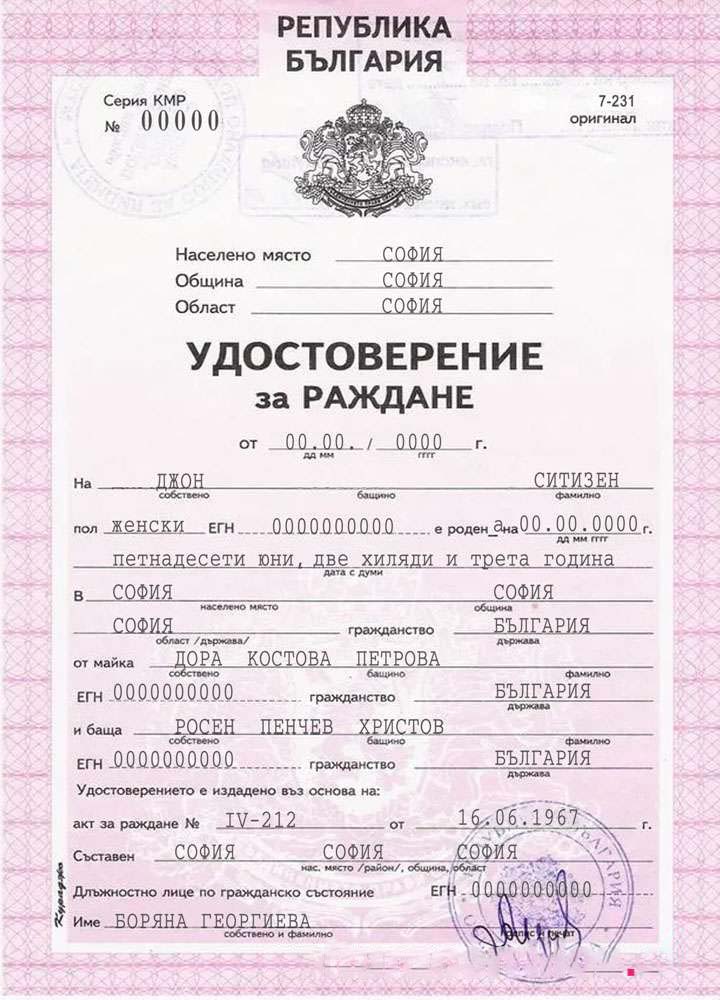 РЕПУБЛИКА
БЪЛГАРИЯ
Серия КМР
№ 00000
7-231
оригинал
Населено място СОФИЯ
Община СОФИЯ
Област СОФИЯ
УДОСТОВЕРЕНИЕ
за РАЖДАНЕ
от 00.00. / 0000 г.
дд мм гггг
На ДЖОН СИТИЗЕН
собствено бащино фамилно
пол женски ЕГН 0000000000 е роден а на 00.00.0000 г.
дд мм гггг
петнадесети юни, две хиляди и трета година
дата с думи
в СОФИЯ СОФИЯ
населено място община
СОФИЯ гражданство БЪЛГАРИЯ
област /държава/ държава
от майка ДОРА КОСТОВА ПЕТРОВА
собствено бащино фамилно
ЕГН 0000000000 гражданство БЪЛГАРИЯ
държава
и баща РОСЕН ПЕНЧЕВ ХРИСТОВ
собствено бащино фамилно
ЕГН 0000000000 гражданство БЪЛГАРИЯ
държава
Удостоверението е издадено въз основа на:
акт за раждане № IV-212 от 16.06.1967 г.
Съставен СОФИЯ СОФИЯ СОФИЯ
нас. място /район/, община, област
Длъжностно лице по гражданско състояние ЕГН 0000000000
Име БОРЯНА ГЕОРГИЕВА
собствено и фамилно подпис и печат